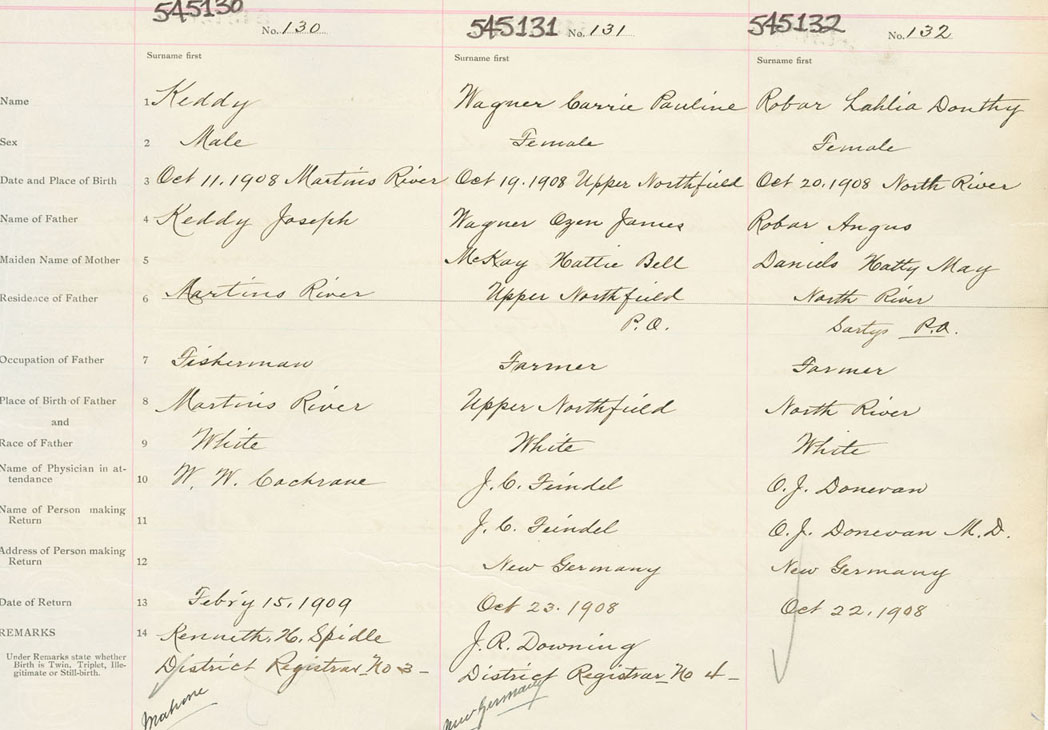 545130 No. 130 545131 No. 131 545132 No. 132
Surname first Surname first Surname first
Name 1 Keddy Wagner Carrie Pauline Robar Lahlia Dorthy
Sex 2 Male Female Female
Date and Place of Birth 3 Oct 11. 1908 Martins River Oct 19. 1908 Upper Northfield Oct 20. 1908 North River
Name of Father 4 Keddy Joseph Wagner Ozen James Robar Angus
Maiden Name of Mother 5 McKay Hattie Bell Daniels Hatty May
Residence of Father 6 Martins River Upper Northfield North River
P.O. P.O.
Occupation of Father 7 Fisherman Farmer Farmer
Place of Birth of Father 8 Martins River Upper Northfield North River
and
Race of Father 9 White White White
Name of Physician in at-
tendance 10 W. W. Cochrane J. C. Feindel O. J. Donevan
Name of Person making
Return 11 J. C. Feindel O. J. Donevan M. D.
Address of Person making
Return 12 New Germany New Germany
Date of Return 13 Febry 15. 1909 Oct 23. 1908 Oct 22. 1908
REMARKS 14 Kenneth. H. Spidle J. R. Downing
Under Remarks state whether
Birth is Twin, Triplet, Ille-
gitimate or Still-birth.
District Registrar No 3 - District Registrar No 4 -
Mahone New Germany